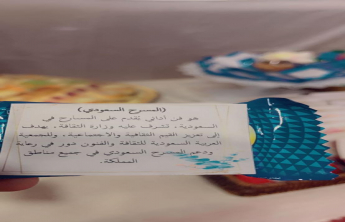 (المسرح السعودي)
هو فن أدائي يقدم على المسارح في
السعودية، تشرف عليه وزارة الثقافة، بهدف
إلى تعزيز القيم الثقافية والاجتماعية، وللجمعية
العربية السعودية للثقافة والفنون دور في رعاية
ودعم المسرح السعودي في جميع مناطق
المملكة.